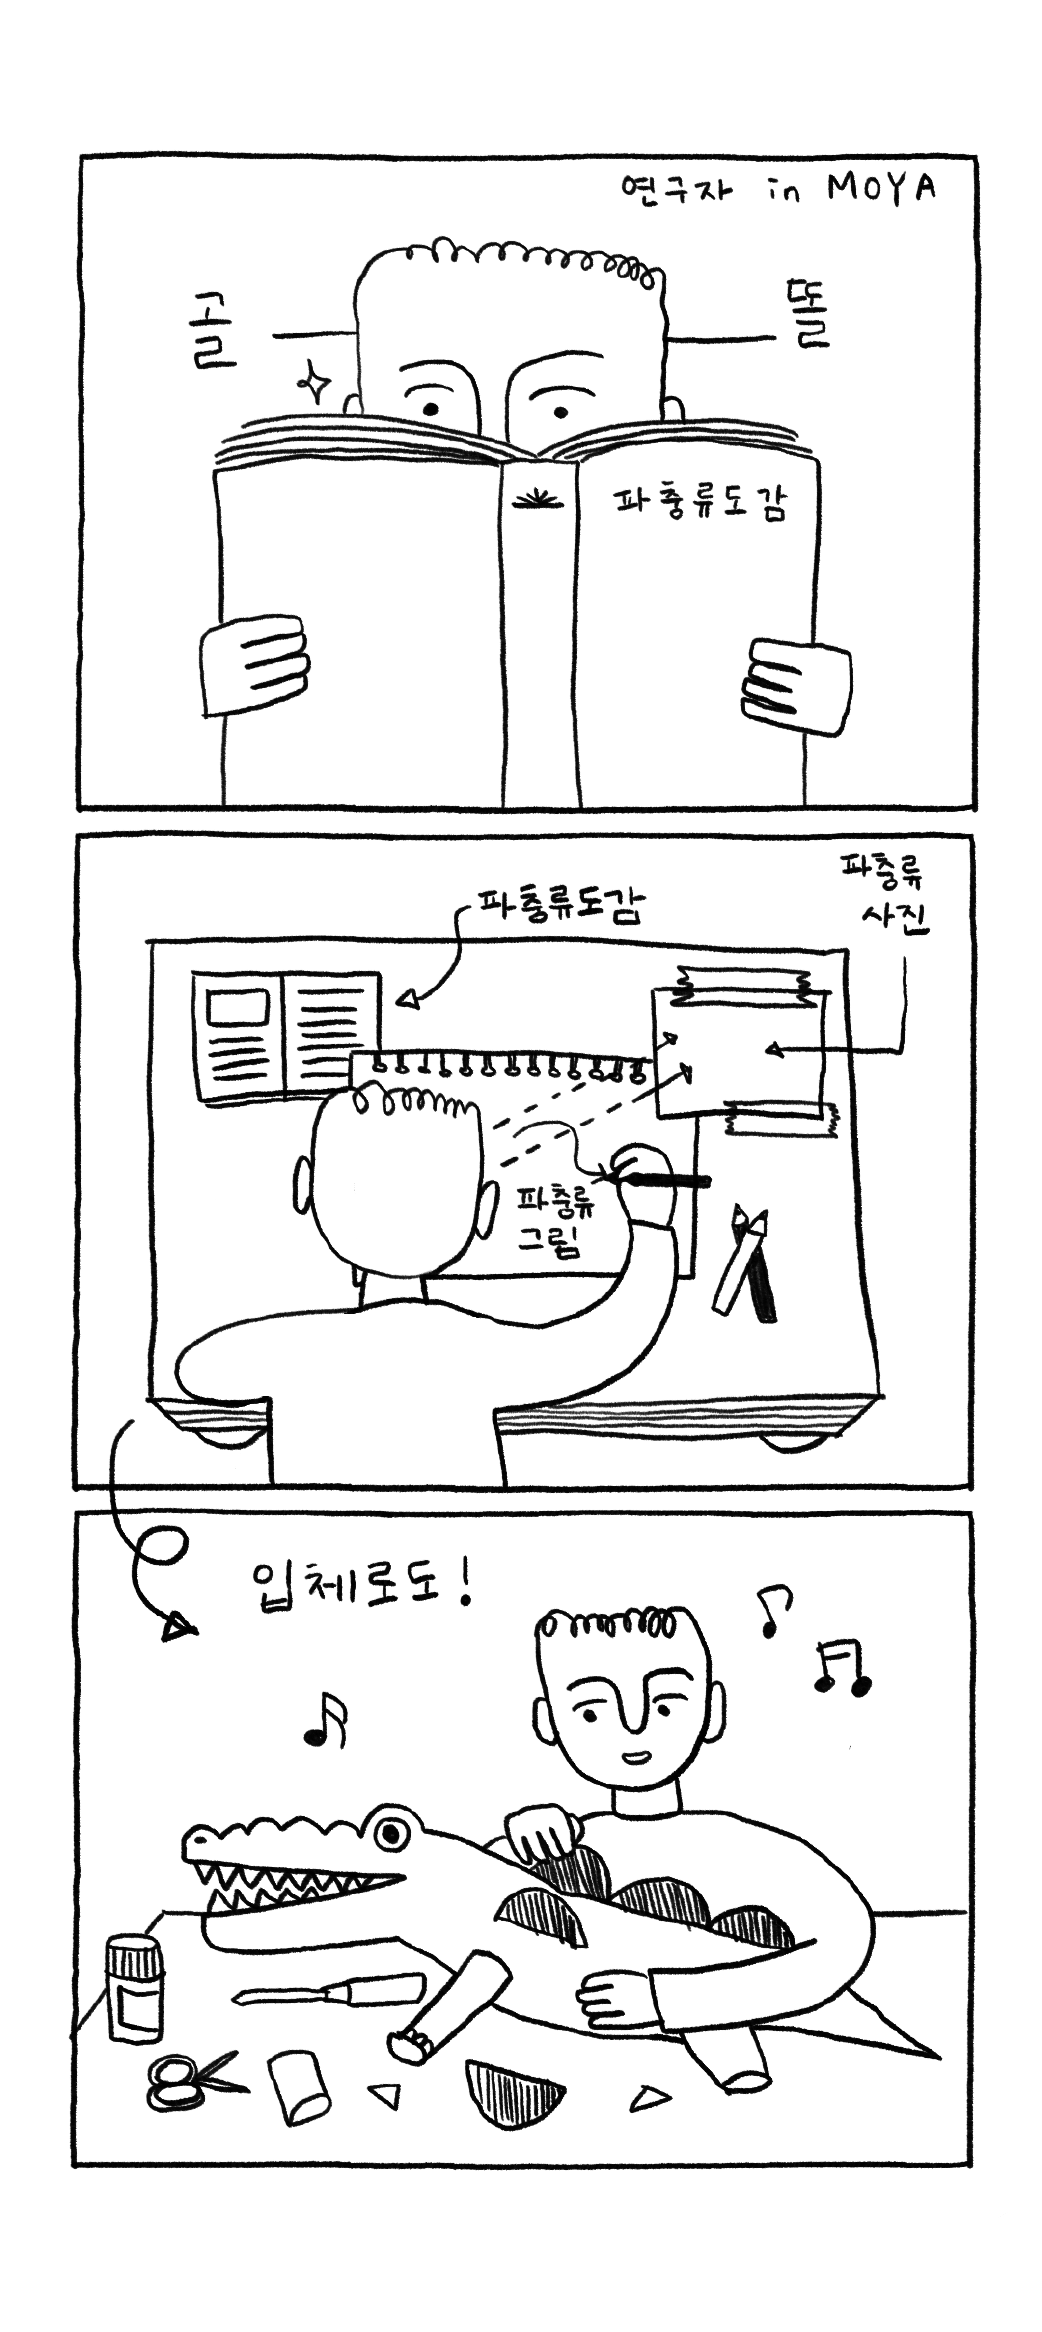 연구자 in MOYA
골
똘
파충류도감
파충류도감
파충류
사진
파충류
그림
입체로도!